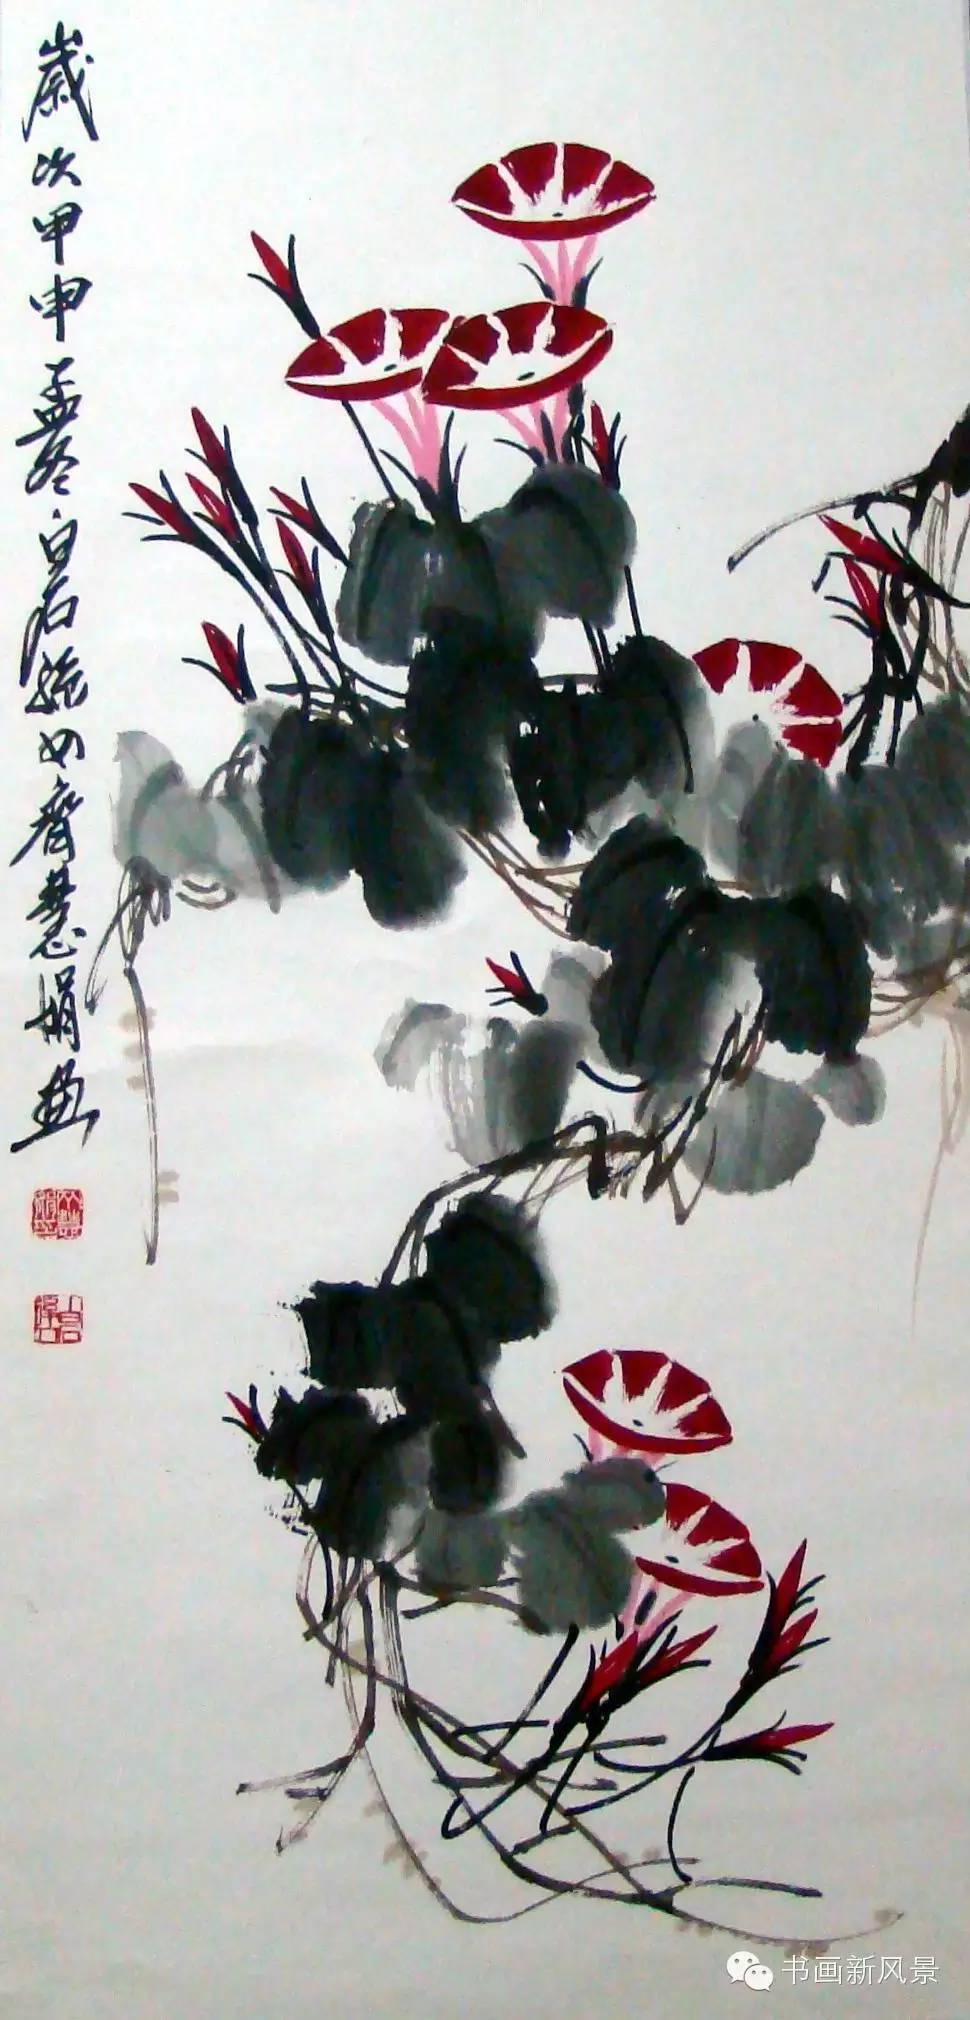 歲次甲申孟冬白石孫女齊慧娟畫
书画新风景